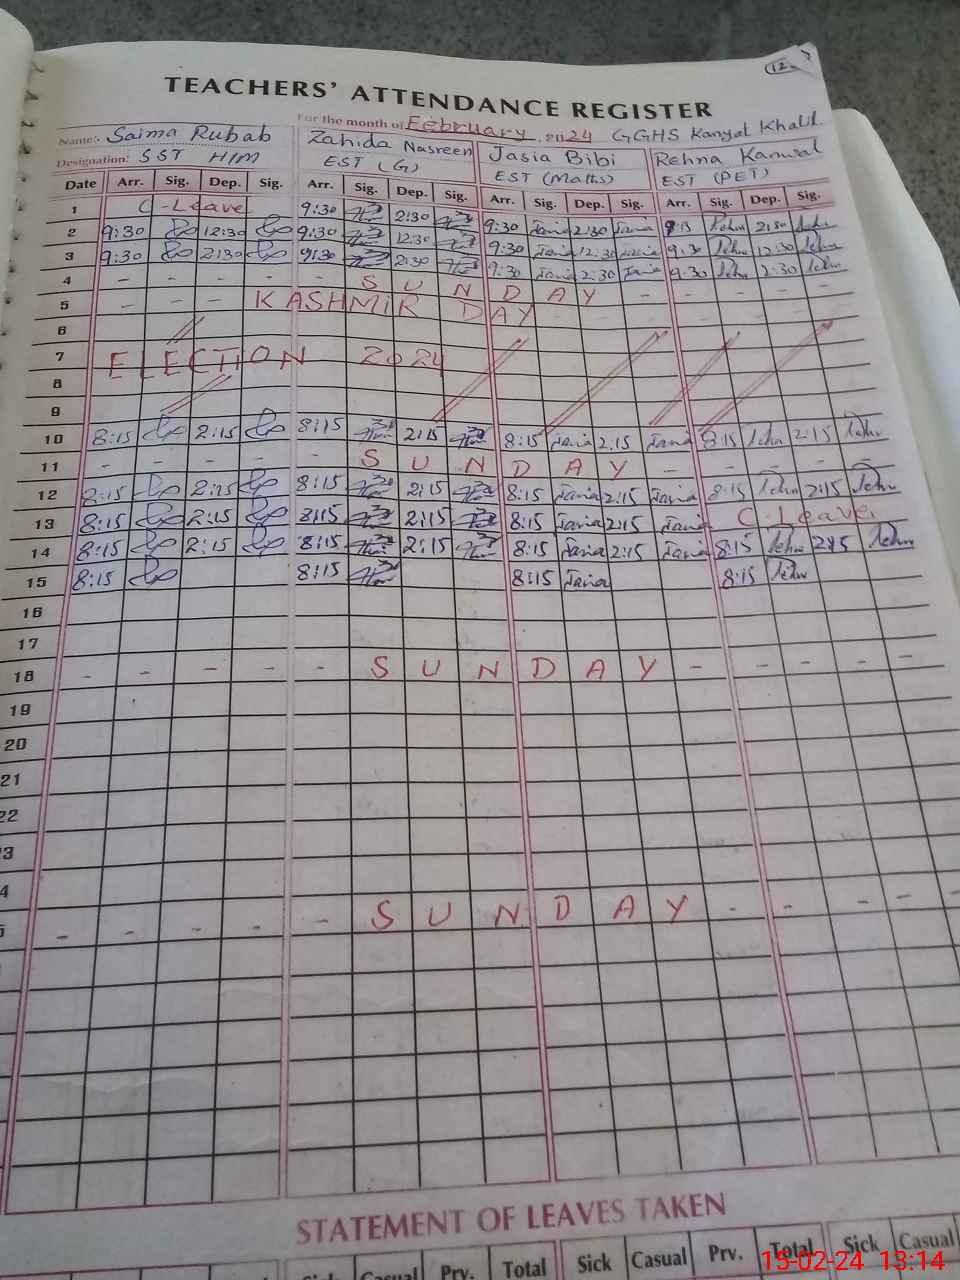 12
TEACHERS' ATTENDANCE REGISTER
For the month of February 2024 GGHS Kanyal Khalil
Name:- Saima Rubab Zahida Nasreen Jasia Bibi Rehna Kanwal
Designation: SST HIM EST (G) EST (Maths) EST (PET)
Date Arr. Sig. Dep. Sig. Arr. Sig. Dep. Sig. Arr. Sig. Dep. Sig. Arr. Sig. Dep. Sig.
1 C-Leave 9:30 2:30 9:30 Jasia 2:30 Jasia 2:30
2 9:30 12:30 9:30 12:30 9:30 Jasia 12:30 Jasia 9:30 12:30
3 9:30 2:30 9:30 2:30 9:30 Jasia 2:30 Jasia 9:30 2:30
4 - - - - - S U N D A Y - - - - -
5 - - - KASHMIR DAY - - - - - -
6
7 ELECTION 2024
8
9
10 8:15 2:15 8:15 2:15 8:15 Jasia 2:15 Jasia 8:15 2:15
11 - - - - - S U N D A Y - - - - -
12 8:15 2:15 8:15 2:15 8:15 Jasia 2:15 Jasia 8:15 2:15
13 8:15 2:15 8:15 2:15 8:15 Jasia 2:15 Jasia C-Leave
14 8:15 2:15 8:15 2:15 8:15 Jasia 2:15 Jasia 8:15 2:15
15 8:15 8:15 8:15 Jasia 8:15
16
17
18 - - - - - S U N D A Y - - - - -
19
20
21
22
3
4
- - - - - S U N D A Y - - - -
STATEMENT OF LEAVES TAKEN
Sick Casual Prv. Total Sick Casual Prv. Total Sick Casual
15-02-24 13:14